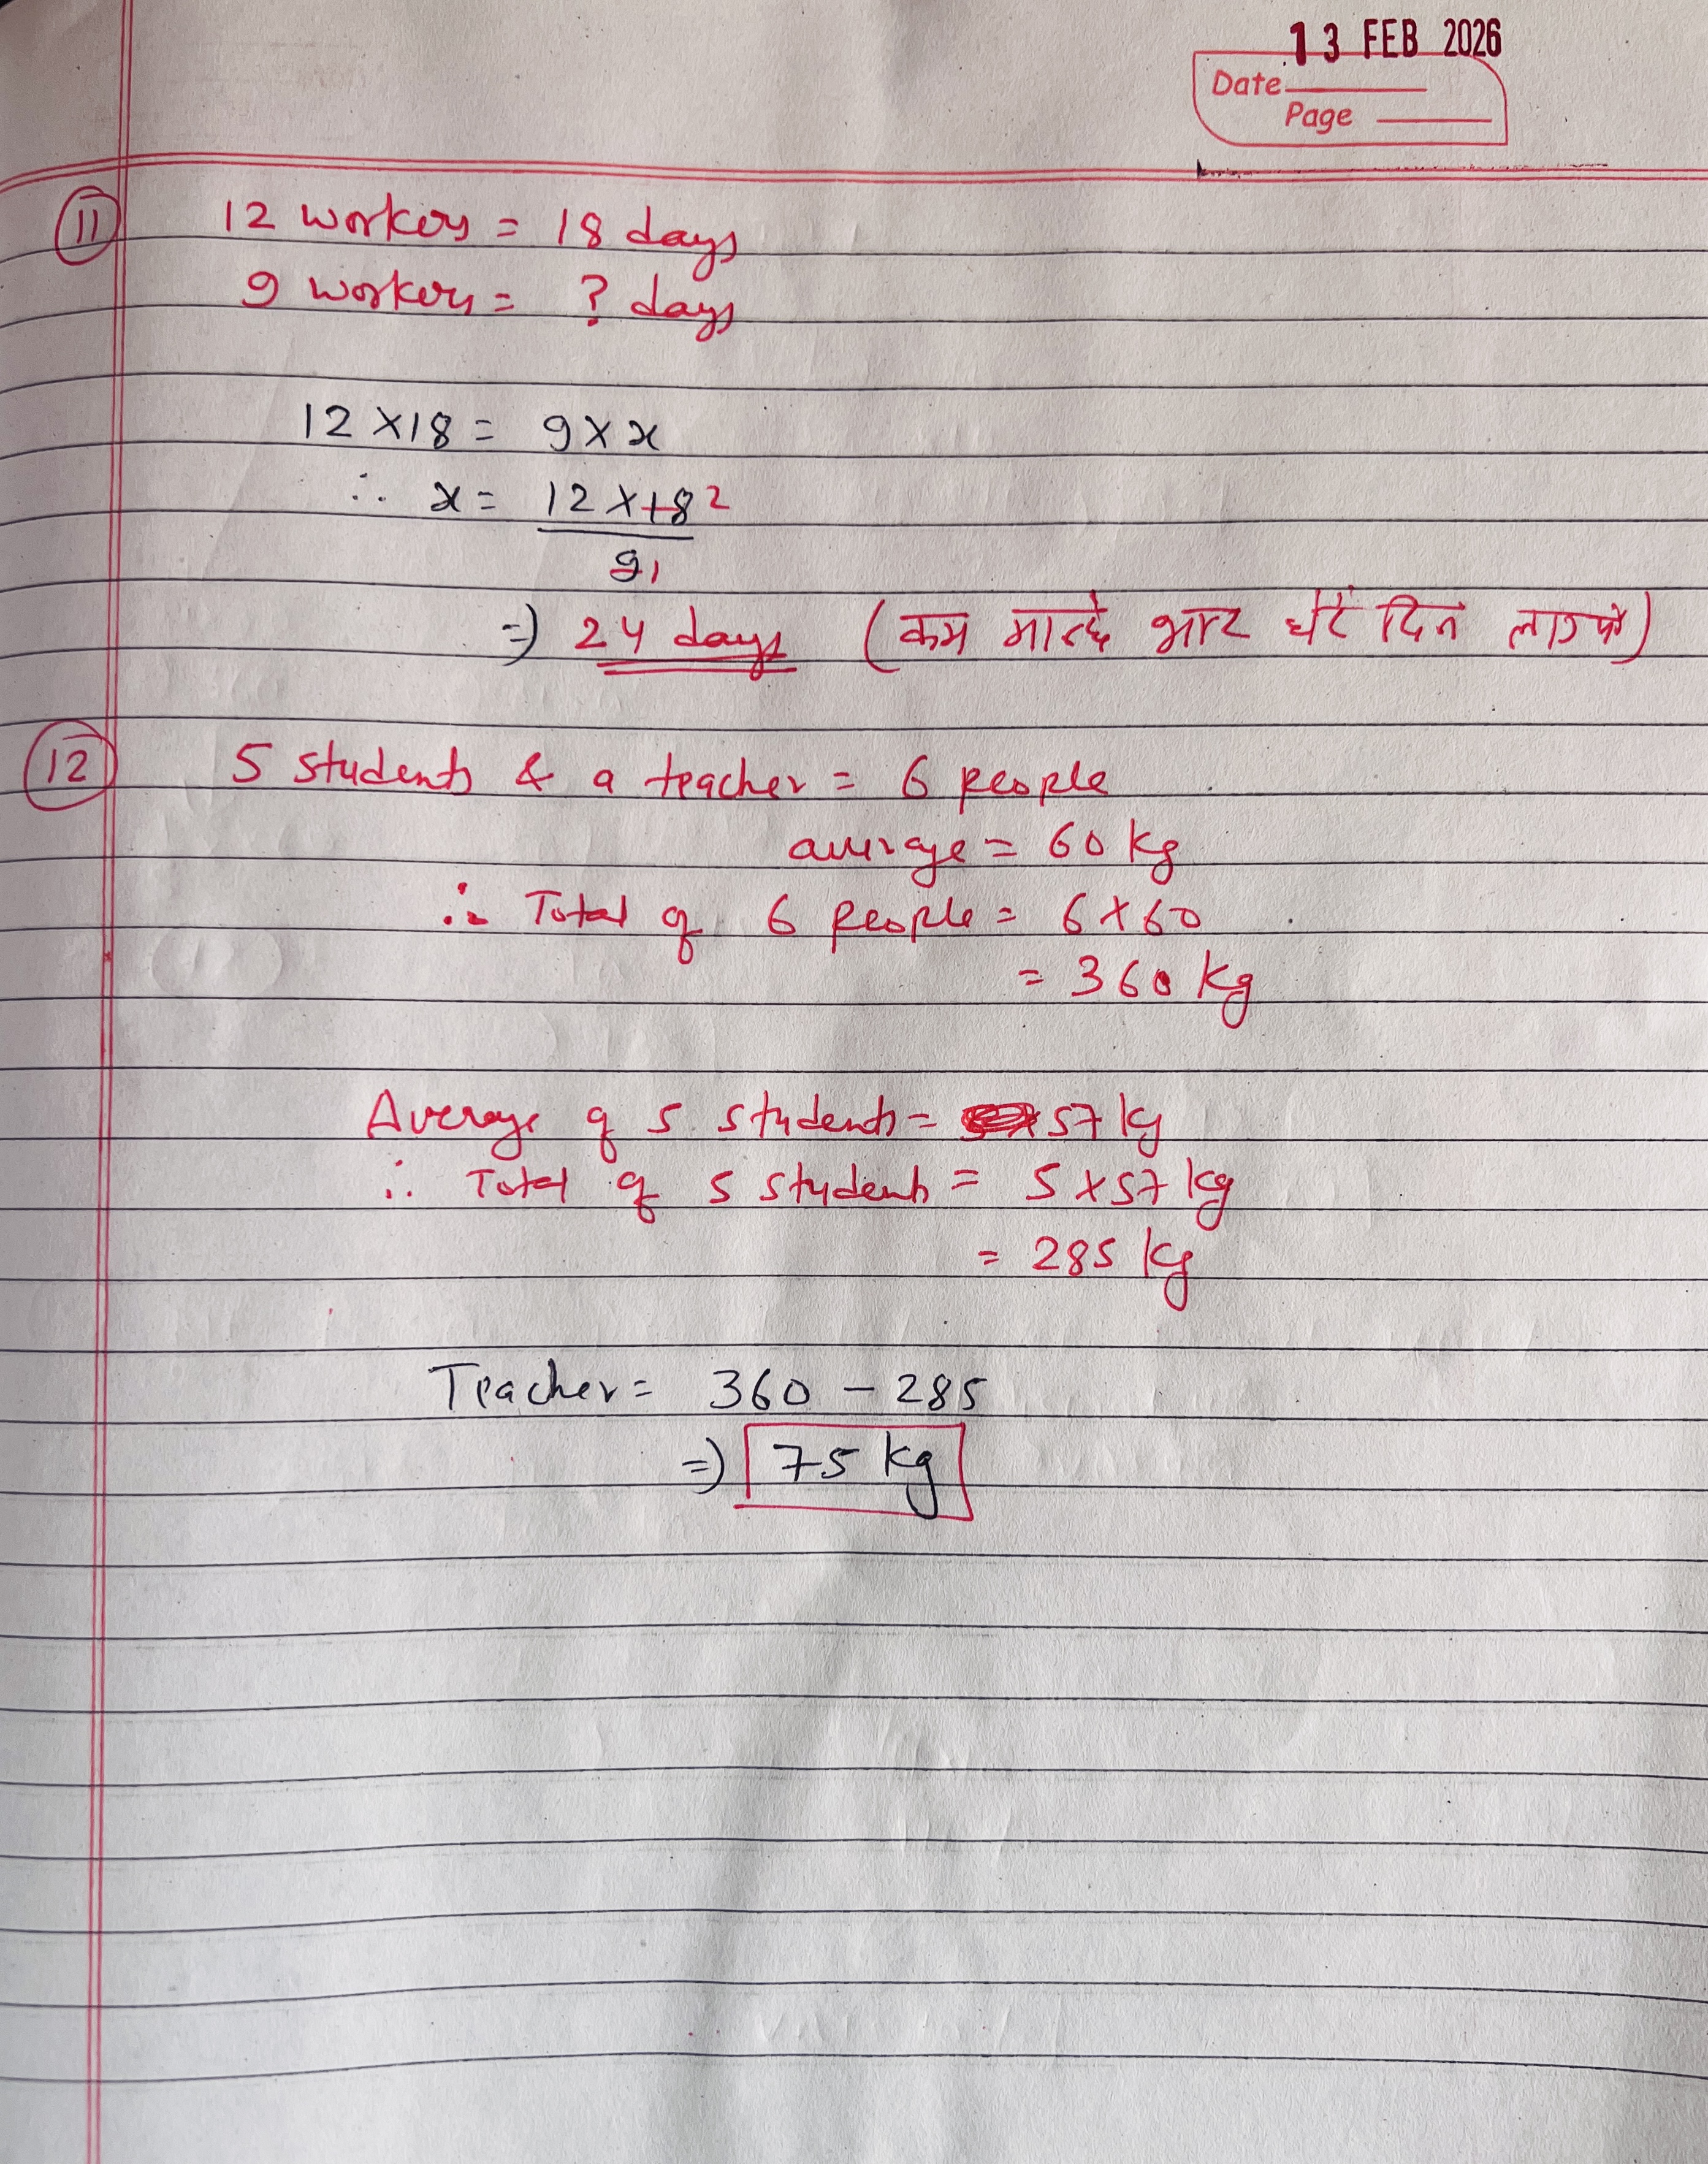 13 FEB 2026
Date
Page
11
12 workers = 18 days
9 workers = ? days
12 × 18 = 9 × x
∴ x = 12 × 18 2
9 1
⇒ 24 days (कम मान्छे भार धेरै दिन लाग्यो)
12
5 students & a teacher = 6 people
average = 60 kg
∴ Total of 6 people = 6 × 60
= 360 kg
Average of 5 students = 57 kg
∴ Total of 5 students = 5 × 57 kg
= 285 kg
Teacher = 360 - 285
⇒ 75 kg